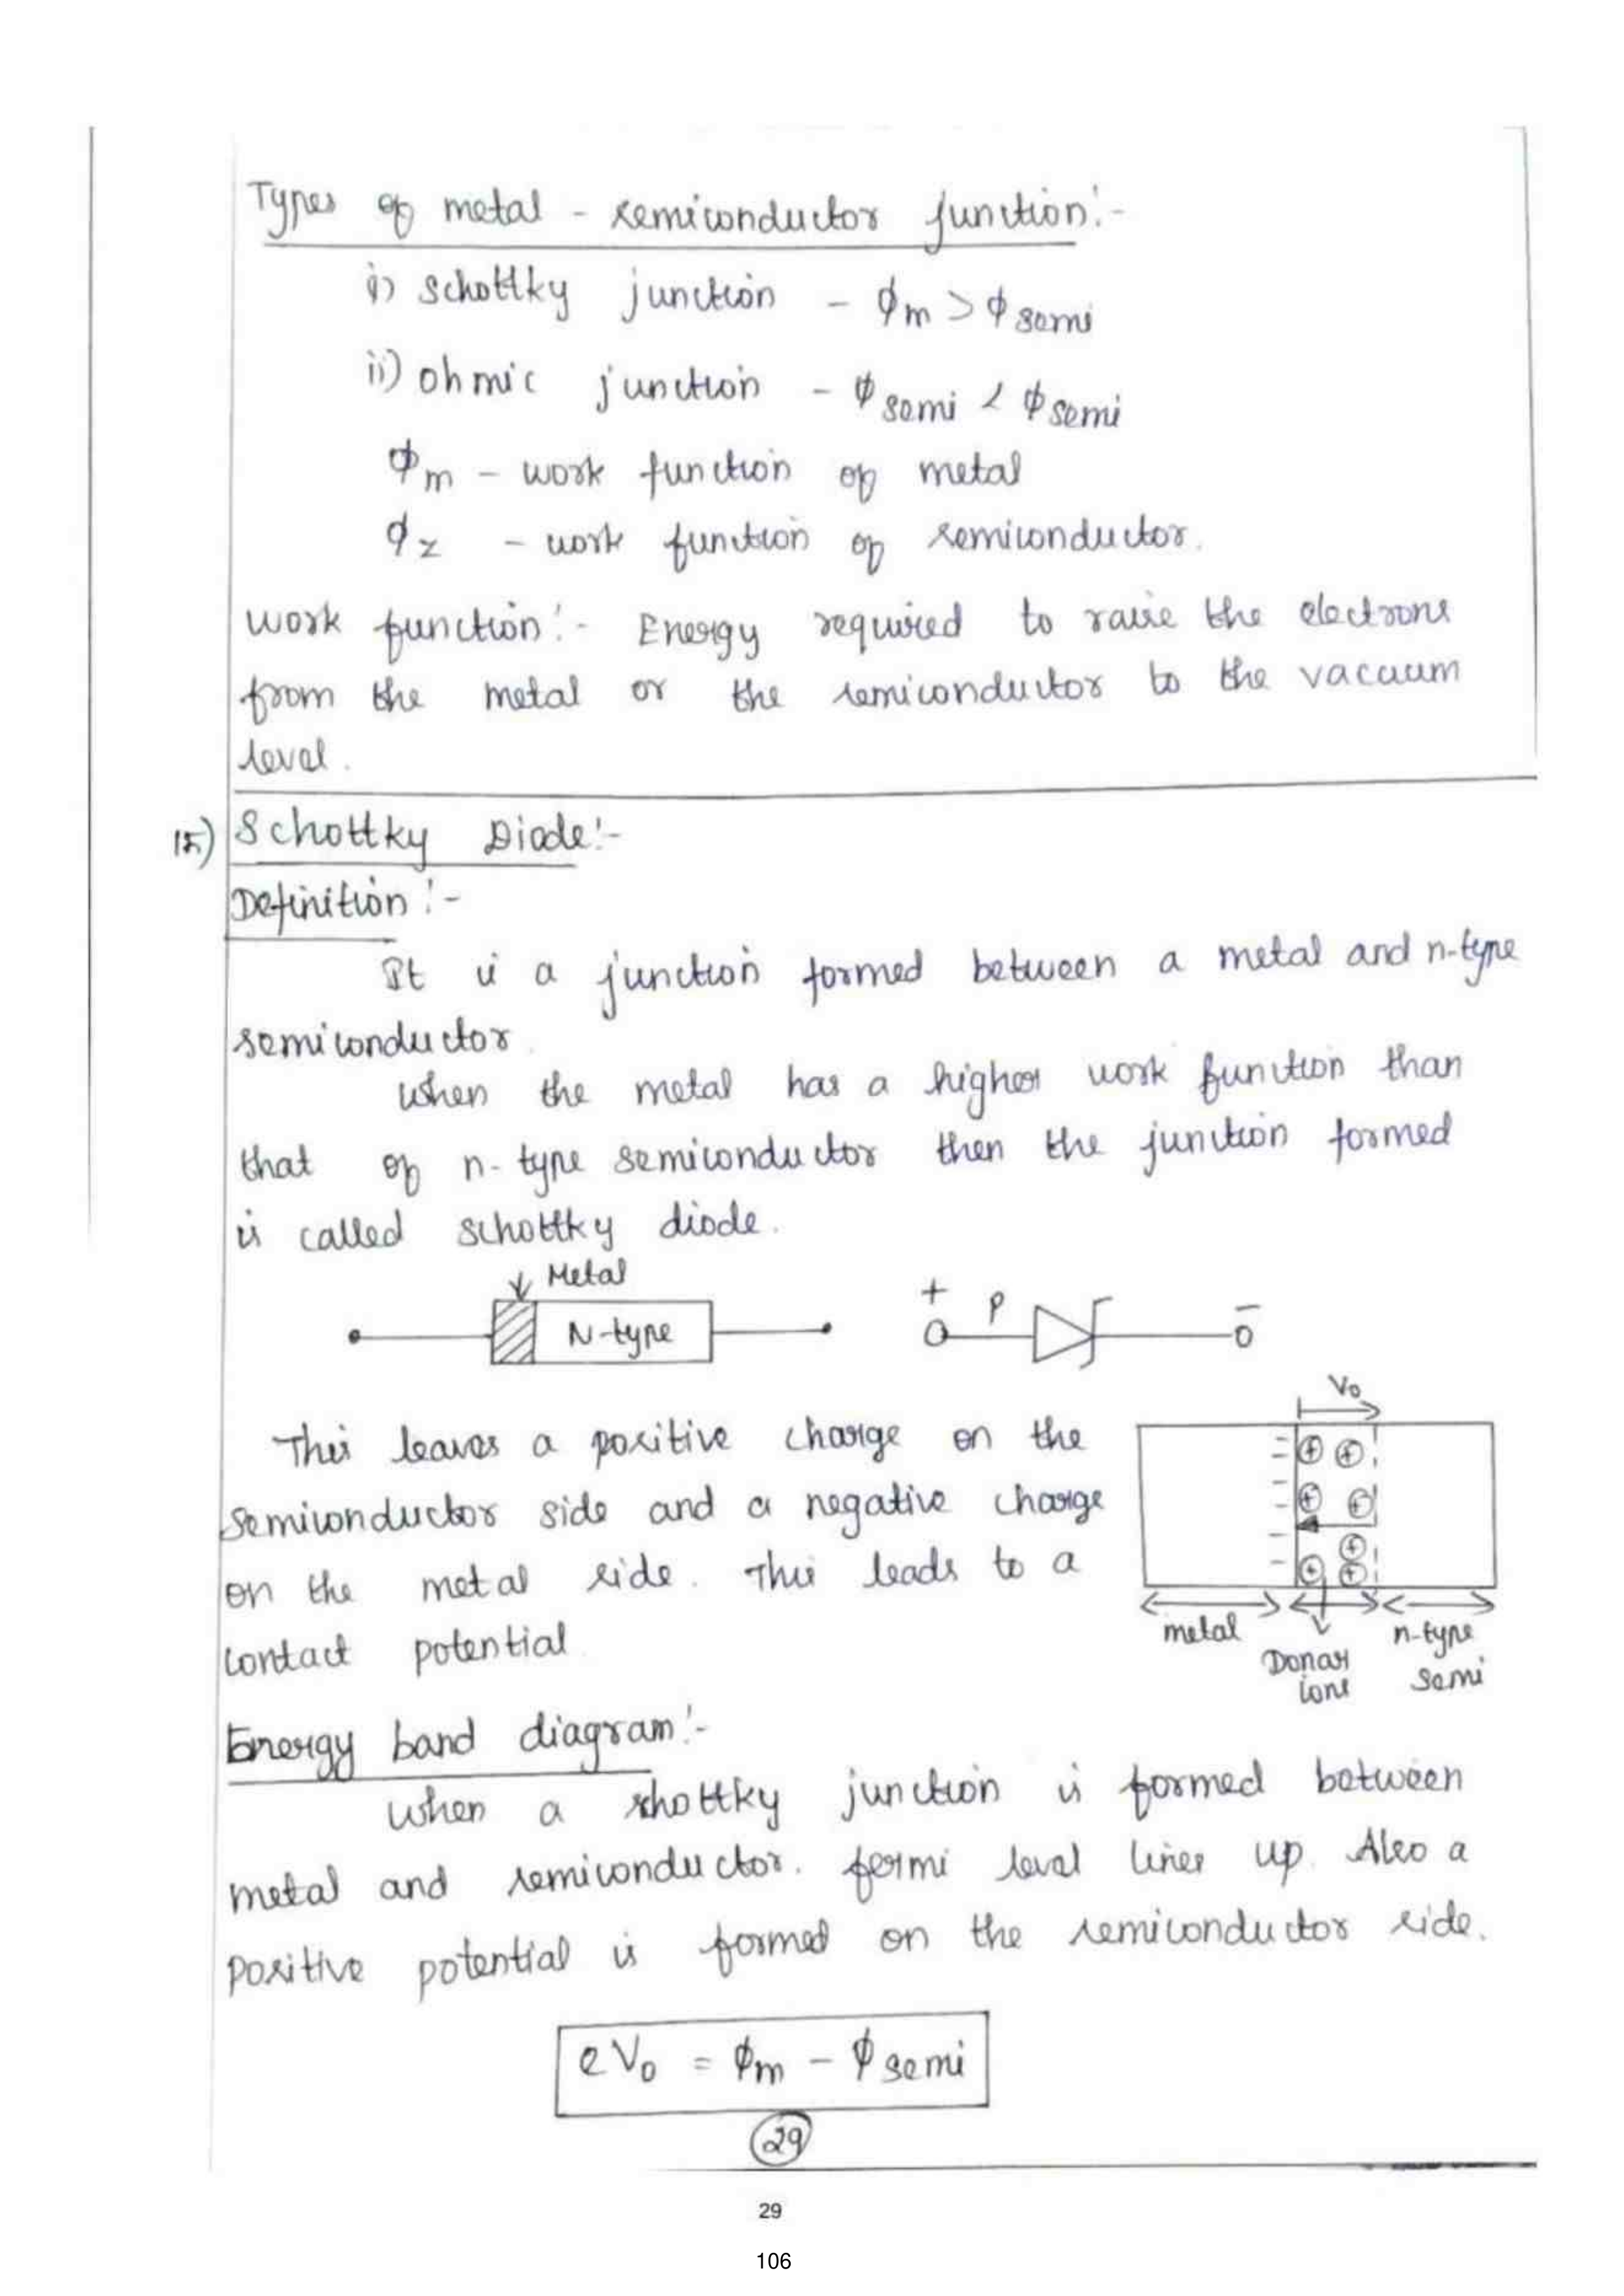 Types of metal - semiconductor junction:-
i) schottky junction - ϕm > ϕsemi
ii) ohmic junction - ϕsemi < ϕsemi
ϕm - work function of metal
ϕz - work function of semiconductor.
work function:- Energy required to raise the electrons
from the metal or the semiconductor to the vacuum
level.
15) Schottky Diode:-
Definition:-
It is a junction formed between a metal and n-type
semiconductor.
When the metal has a higher work function than
that of n-type semiconductor then the junction formed
is called schottky diode.
Metal
N-type
+ P -
V0
This leaves a positive charge on the
semiconductor side and a negative charge
on the metal side. This leads to a
contact potential.
metal
Donar
ions
n-type
semi
Energy band diagram:-
When a shottky junction is formed between
metal and semiconductor. fermi level lines up. Also a
positive potential is formed on the semiconductor side.
eV0 = ϕm - ϕsemi
29
29
106